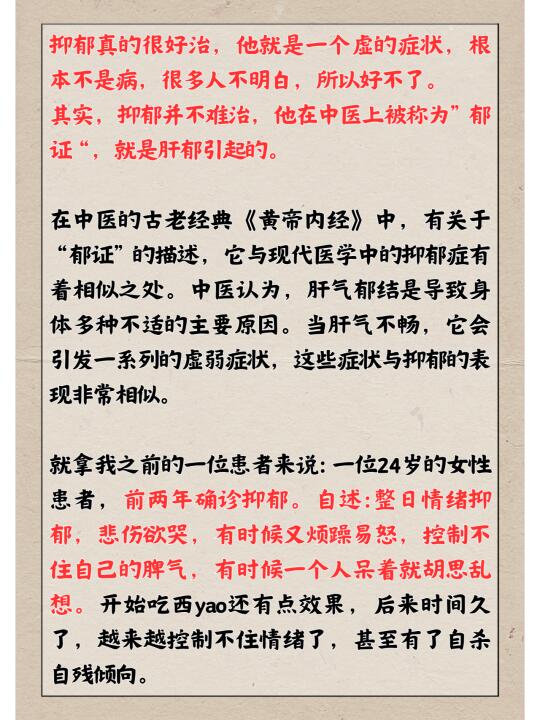 抑郁真的很好治，他就是一个虚的症状，根
本不是病，很多人不明白，所以好不了。
其实，抑郁并不难治，他在中医上被称为”郁
证“，就是肝郁引起的。
在中医的古老经典《黄帝内经》中，有关于
“郁证”的描述，它与现代医学中的抑郁症有
着相似之处。中医认为，肝气郁结是导致身
体多种不适的主要原因。当肝气不畅，它会
引发一系列的虚弱症状，这些症状与抑郁的表
现非常相似。
就拿我之前的一位患者来说：一位24岁的女性
患者，前两年确诊抑郁。自述：整日情绪抑
郁，悲伤欲哭，有时候又烦躁易怒，控制不
住自己的脾气，有时候一个人呆着就胡思乱
想。开始吃西yao还有点效果，后来时间久
了，越来越控制不住情绪了，甚至有了自杀
自残倾向。